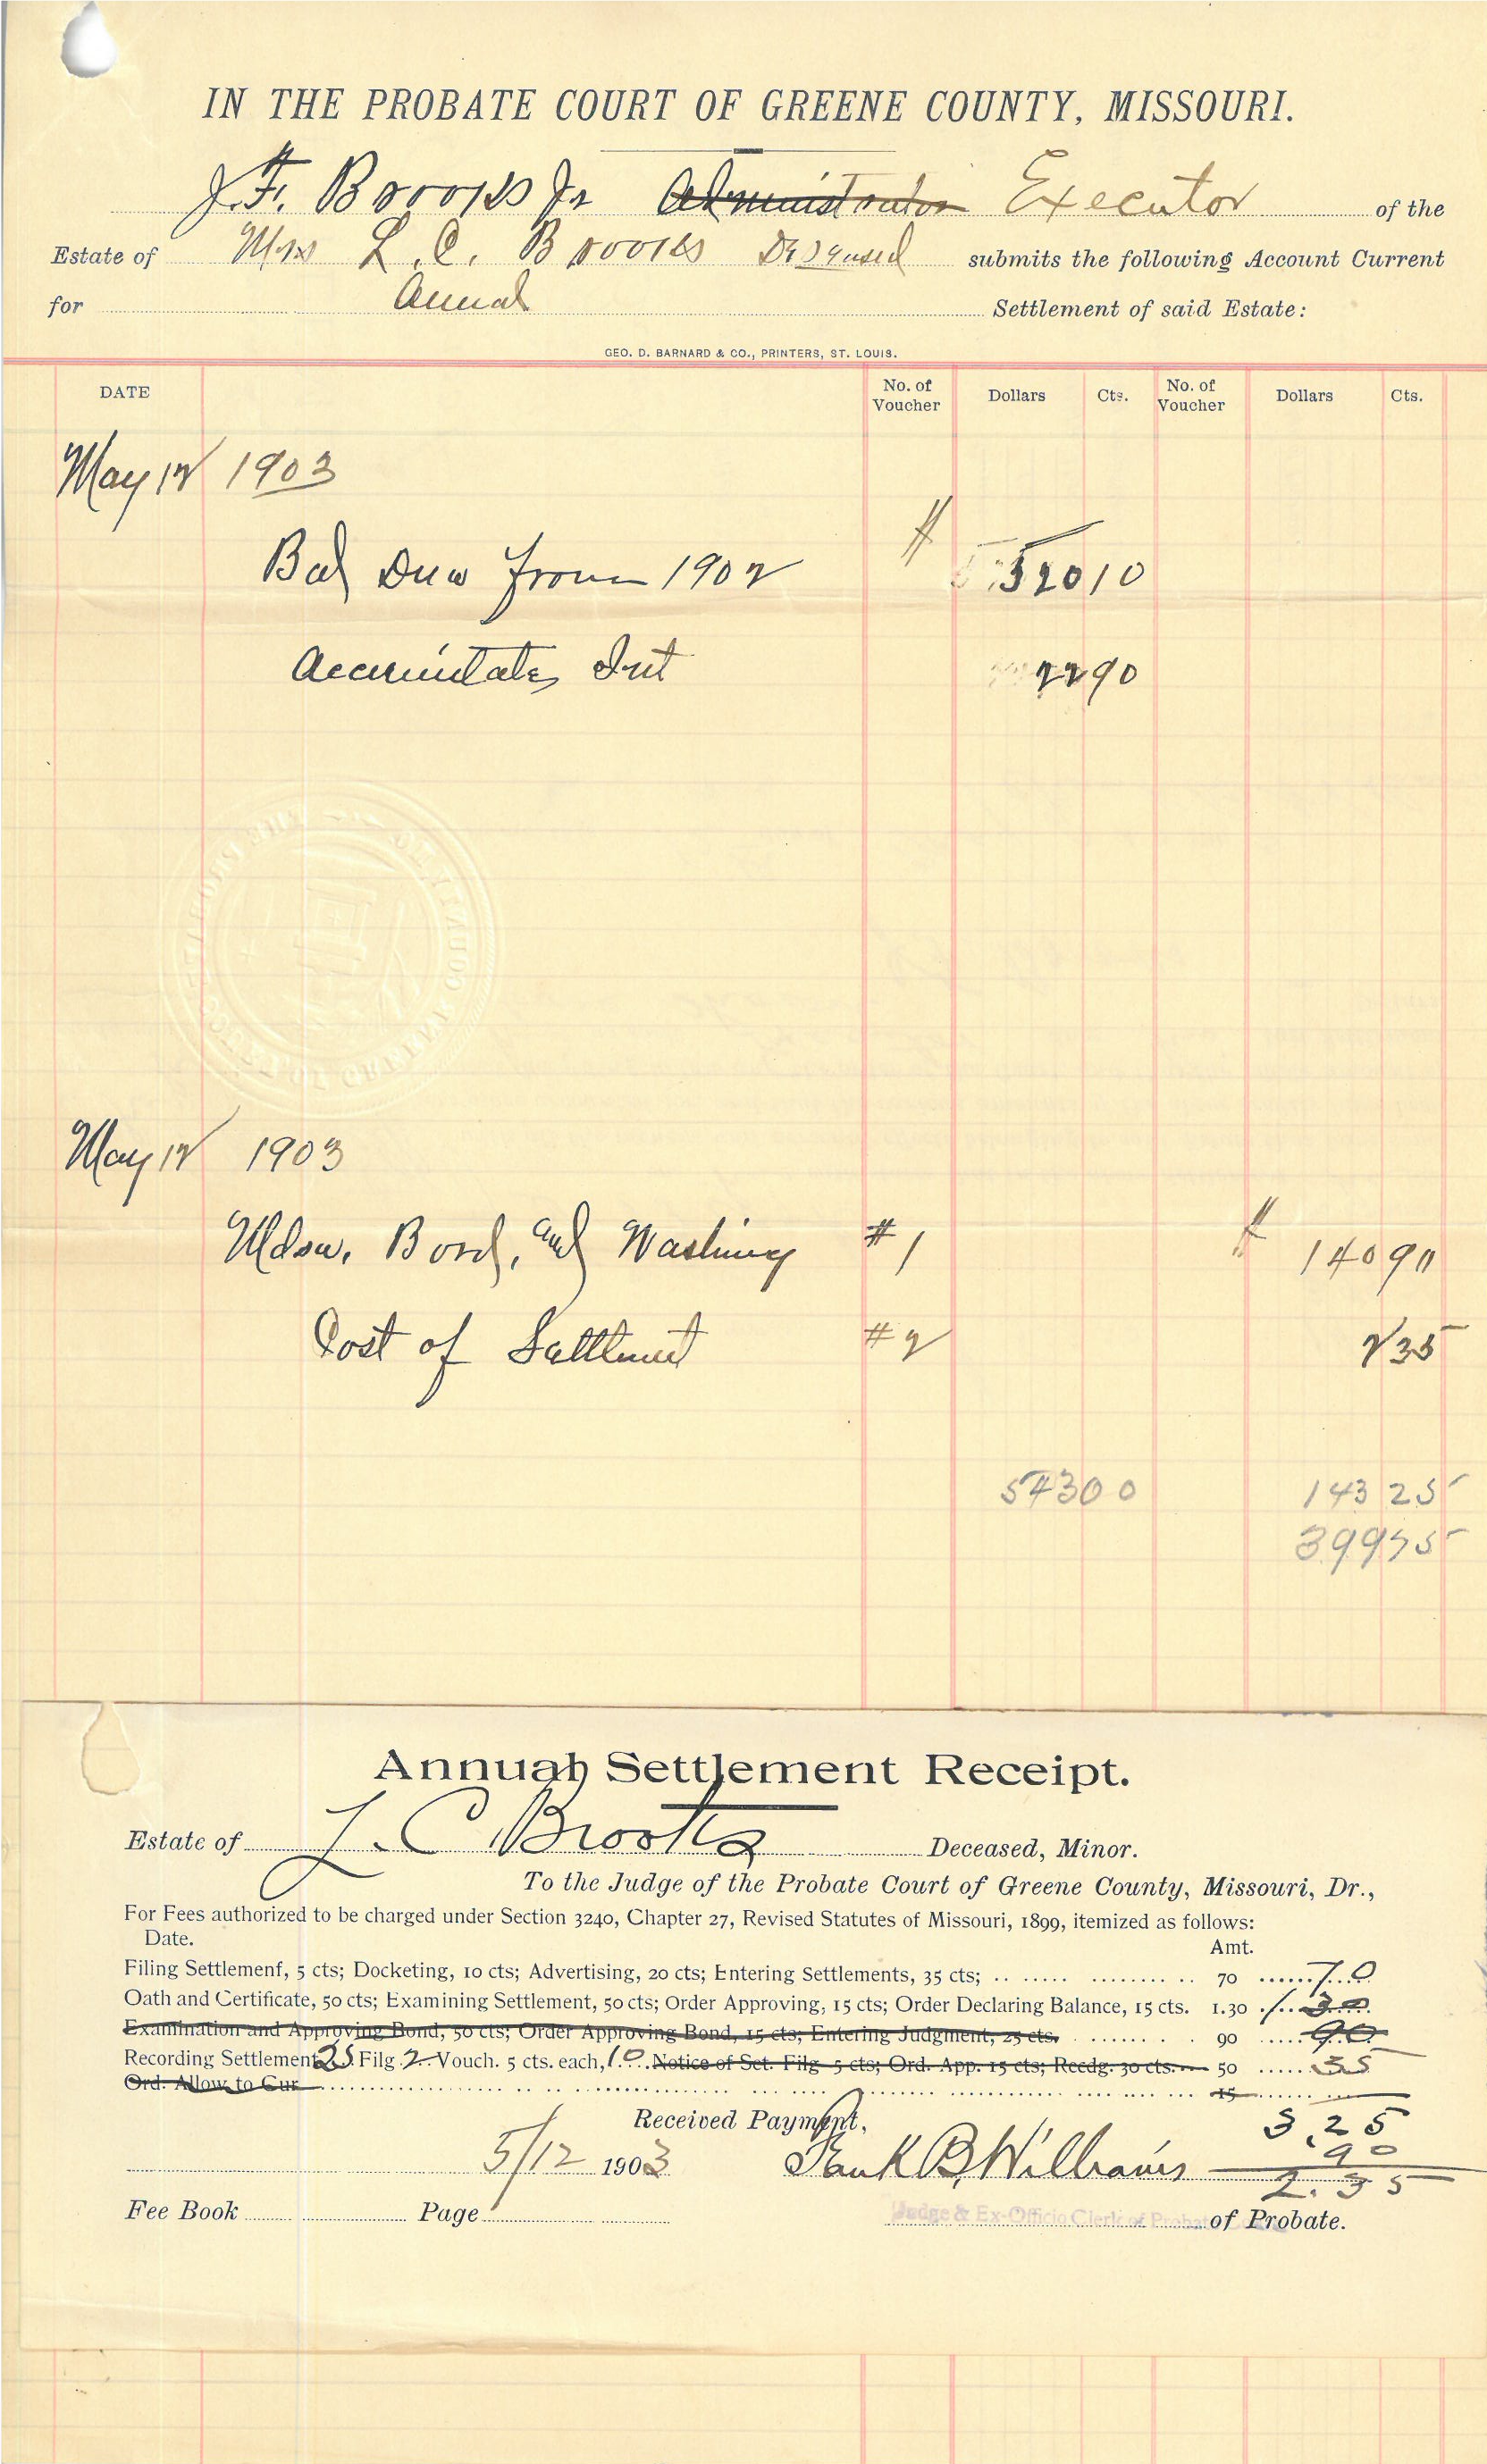 IN THE PROBATE COURT OF GREENE COUNTY, MISSOURI.
J. F. Brooks Jr Administrator Executor of the
Estate of Mrs L. C. Brooks Deseased submits the following Account Current
for Anual Settlement of said Estate:
GEO. D. BARNARD & CO., PRINTERS, ST. LOUIS.
DATE No. of Voucher Dollars Cts. No. of Voucher Dollars Cts.
May 12 1903
Bal Due from 1902 $ 520 10
Int 22 90
May 12 1903
Mdse, Bord, and Washing #1 $ 140 90
Cost of Settlment #2 2 35
543 00 143 25
399 75
Annual Settlement Receipt.
Estate of L. C. Brooks Deceased, Minor.
To the Judge of the Probate Court of Greene County, Missouri, Dr.,
For Fees authorized to be charged under Section 3240, Chapter 27, Revised Statutes of Missouri, 1899, itemized as follows:
Date. Amt.
Filing Settlement, 5 cts; Docketing, 10 cts; Advertising, 20 cts; Entering Settlements, 35 cts; 70 70
Oath and Certificate, 50 cts; Examining Settlement, 50 cts; Order Approving, 15 cts; Order Declaring Balance, 15 cts. 1.30 1.30
Examination and Approving Bond, 50 cts; Order Approving Bond, 15 cts; Entering Judgment, 25 cts. 90 90
Recording Settlement 25 Filg 2 Vouch. 5 cts. each, 10 Notice of Set. Filg 5 cts; Ord. App. 15 cts; Recdg. 30 cts. 50 35
Ord. Allow to Cur 15
Received Payment, 3.25
90
5/12 1903 Frank B. Williams 2.35
Judge & Ex-Officio Clerk of Probate
Fee Book Page of Probate.